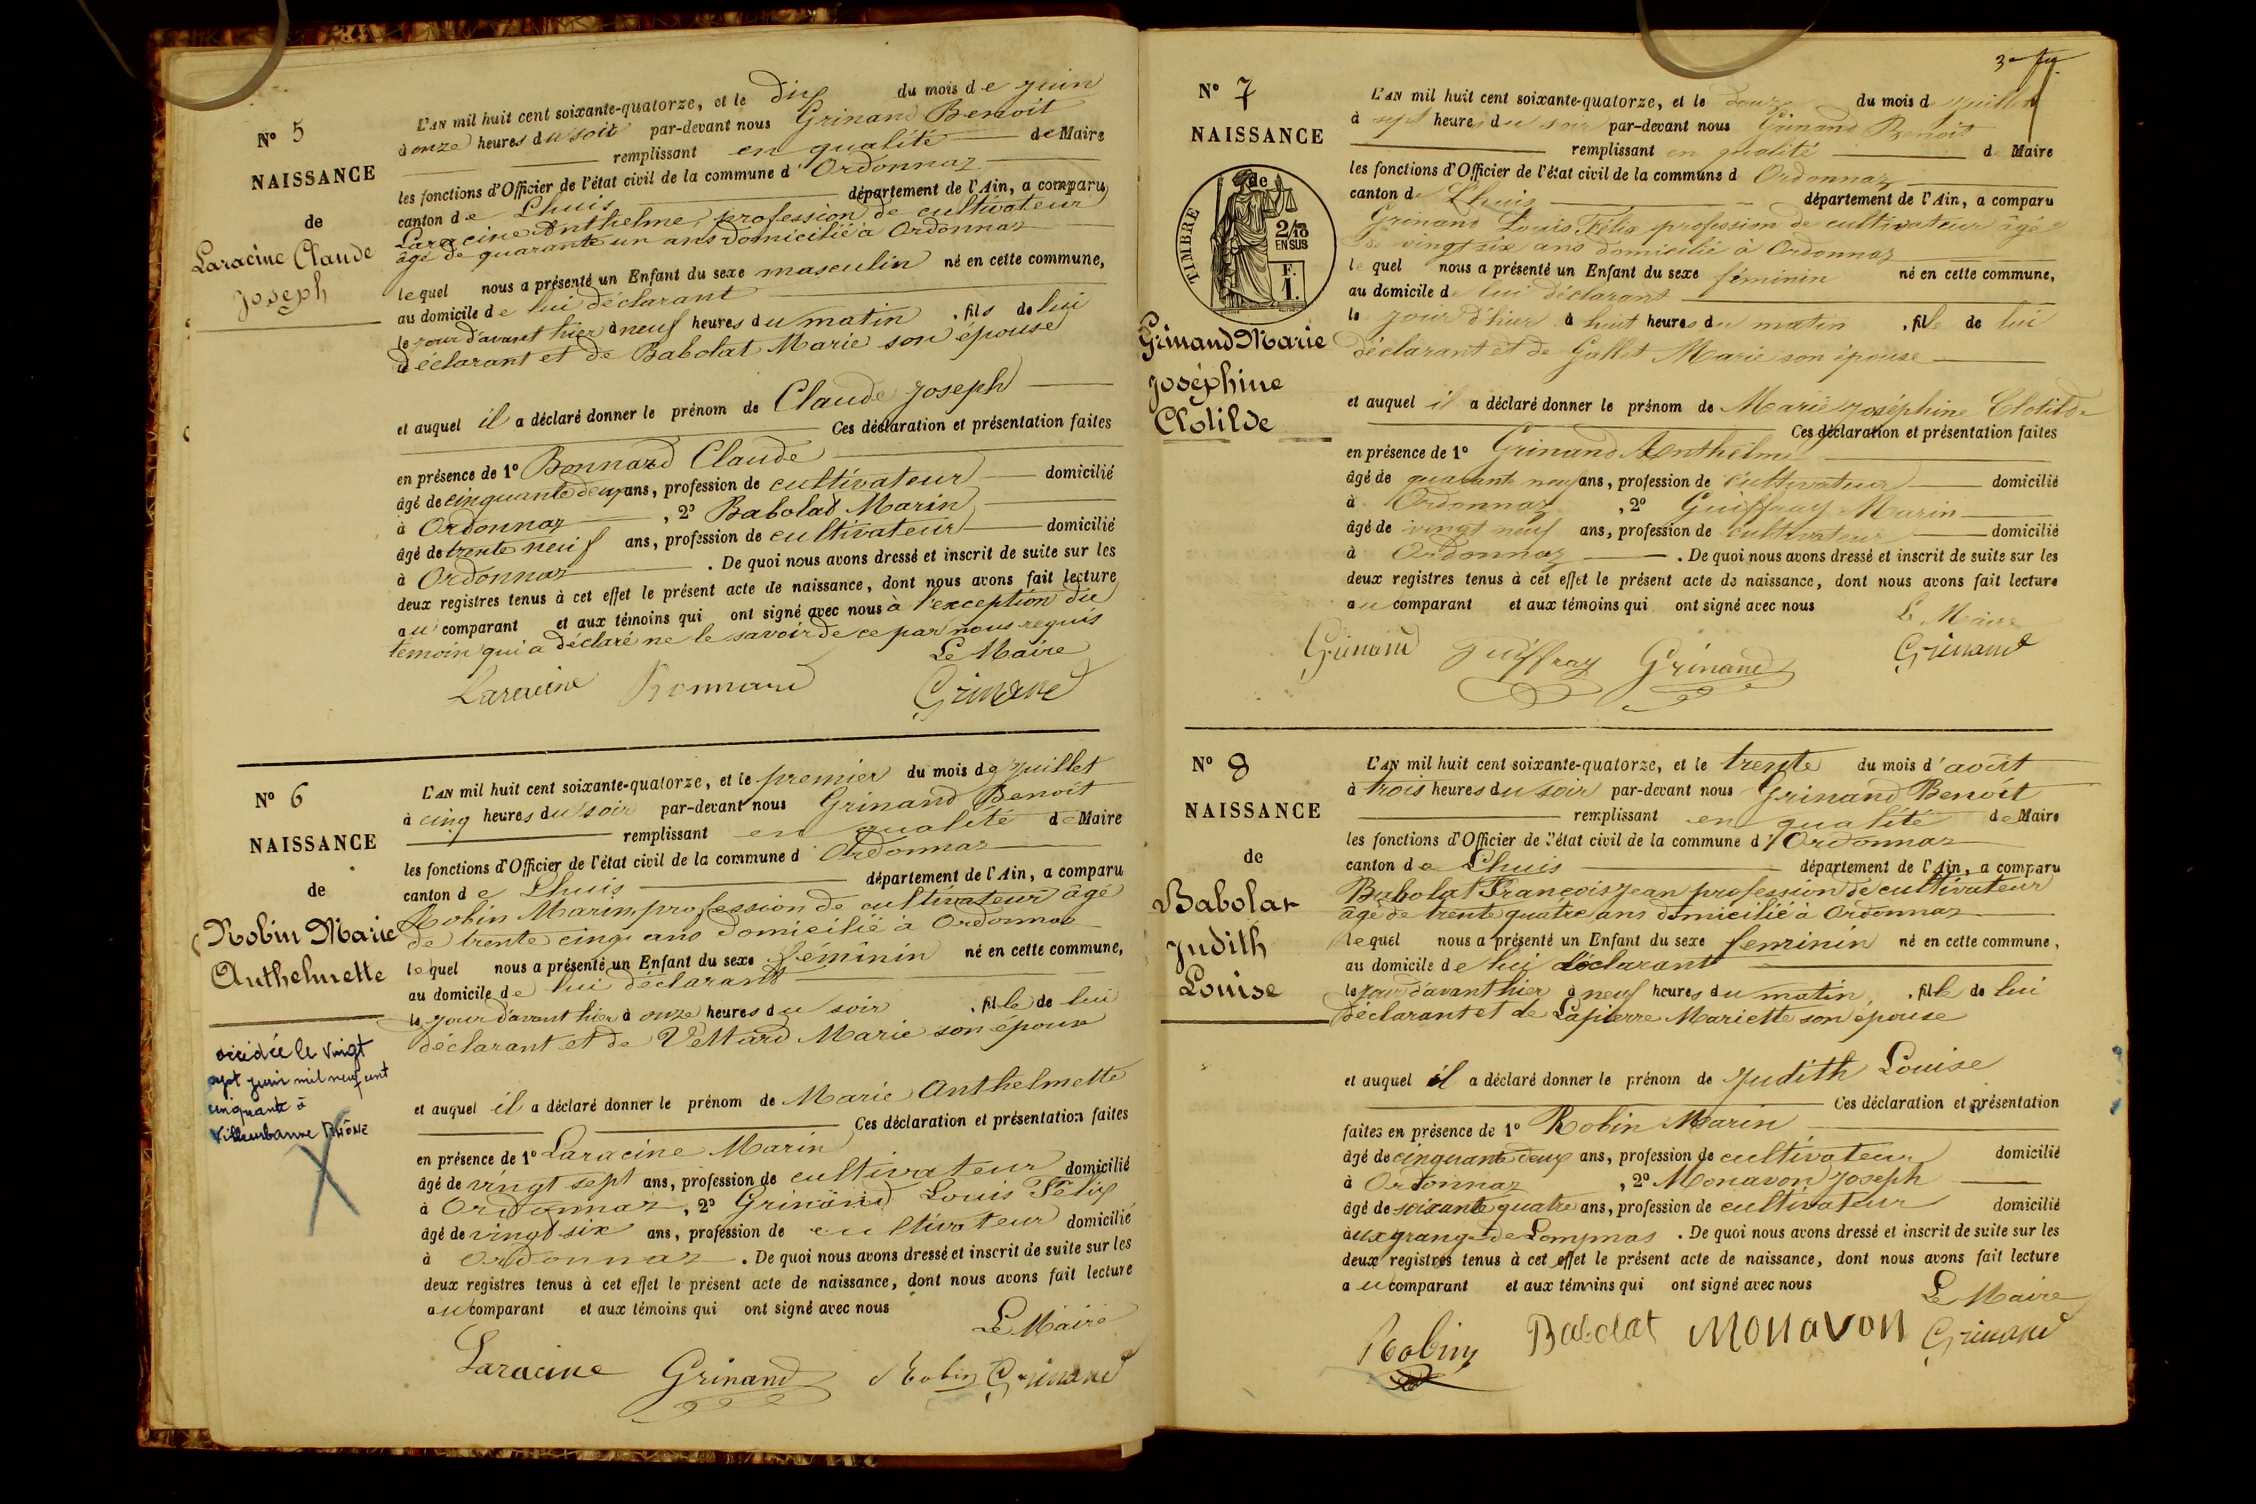 N° 5
NAISSANCE
de
Laracine Claude
Joseph
L'AN mil huit cent soixante-quatorze, et le dix du mois de juin
à onze heures du soir par-devant nous Grinand Benoit
remplissant en qualité de Maire
les fonctions d'Officier de l'état civil de la commune d'Ordonnaz
canton de Lhuis département de l'Ain, a comparu
Laracine Anthelme, profession de cultivateur
âgé de quarante un ans domicilié à Ordonnaz
lequel nous a présenté un Enfant du sexe masculin né en cette commune,
au domicile de lui déclarant
le jour d'avant hier à neuf heures du matin, fils de lui
déclarant et de Babolat Marie son épouse
et auquel il a déclaré donner le prénom de Claude Joseph
Ces déclaration et présentation faites
en présence de 1° Bonnard Claude
âgé de cinquante deux ans, profession de cultivateur domicilié
à Ordonnaz, 2° Babolad Marin
âgé de trente neuf ans, profession de cultivateur domicilié
à Ordonnaz. De quoi nous avons dressé et inscrit de suite sur les
deux registres tenus à cet effet le présent acte de naissance, dont nous avons fait lecture
au comparant et aux témoins qui ont signé avec nous à l'exception du
témoin qui a déclaré ne le savoir de ce par nous requis
Le Maire
Laracine Bonnard Grinand
N° 6
NAISSANCE
de
Robin Marie
Anthelmette
décidée le vingt
sept juin mil neuf cent
cinquante à
Villeurbanne RHÔNE
L'AN mil huit cent soixante-quatorze, et le premier du mois de juillet
à cinq heures du soir par-devant nous Grinand Benoit
remplissant en qualité de Maire
les fonctions d'Officier de l'état civil de la commune d'Ordonnaz
canton de Lhuis département de l'Ain, a comparu
Robin Marin, profession de cultivateur âgé
de trente cinq ans domicilié à Ordonnaz
lequel nous a présenté un Enfant du sexe féminin né en cette commune,
au domicile de lui déclarant
le jour d'avant hier à onze heures du soir, fille de lui
déclarant et de Vettard Marie son épouse
et auquel il a déclaré donner le prénom de Marie Anthelmette
Ces déclaration et présentation faites
en présence de 1° Laracine Marin
âgé de vingt sept ans, profession de cultivateur domicilié
à Ordonnaz, 2° Grinand Louis Félix
âgé de vingt six ans, profession de cultivateur domicilié
à Ordonnaz. De quoi nous avons dressé et inscrit de suite sur les
deux registres tenus à cet effet le présent acte de naissance, dont nous avons fait lecture
au comparant et aux témoins qui ont signé avec nous
Le Maire
Laracine Grinand Robin Grinand
N° 7
NAISSANCE
de
TIMBRE
2/10
EN SUS
F.
1.
Grinand Marie
Joséphine
Clotilde
L'AN mil huit cent soixante-quatorze, et le douze du mois de juillet
à sept heures du soir par-devant nous Grinand Benoit
remplissant en qualité de Maire
les fonctions d'Officier de l'état civil de la commune d Ordonnaz
canton de Lhuis département de l'Ain, a comparu
Grinand Louis Félix profession de cultivateur âgé
de vingt six ans domicilié à Ordonnaz
lequel nous a présenté un Enfant du sexe féminin né en cette commune,
au domicile de lui déclarant
le jour d'hier à huit heures du matin, fille de lui
déclarant et de Gallet Marie son épouse
et auquel il a déclaré donner le prénom de Marie Joséphine Clotilde
Ces déclaration et présentation faites
en présence de 1° Grinand Anthelme
âgé de quarante neuf ans, profession de cultivateur domicilié
à Ordonnaz, 2° Guiffray Marin
âgé de vingt neuf ans, profession de cultivateur domicilié
à Ordonnaz. De quoi nous avons dressé et inscrit de suite sur les
deux registres tenus à cet effet le présent acte de naissance, dont nous avons fait lecture
au comparant et aux témoins qui ont signé avec nous
Le Maire
Grinand Guiffray Grinand Grinand
N° 8
NAISSANCE
de
Babolat
Judith
Louise
L'AN mil huit cent soixante-quatorze, et le trente du mois d'août
à trois heures du soir par-devant nous Grinand Benoit
remplissant en qualité de Maire
les fonctions d'Officier de l'état civil de la commune d'Ordonnaz
canton de Lhuis département de l'Ain, a comparu
Babolat François Jean profession de cultivateur
âgé de trente quatre ans domicilié à Ordonnaz
lequel nous a présenté un Enfant du sexe feminin né en cette commune,
au domicile de lui déclarant
le jour d'avant hier à neuf heures du matin, fille de lui
déclarant et de Lapierre Mariette son épouse
et auquel il a déclaré donner le prénom de Judith Louise
Ces déclaration et présentation
faites en présence de 1° Robin Marin
âgé de cinquante deux ans, profession de cultivateur domicilié
à Ordonnaz, 2° Monavon Joseph
âgé de soixante quatre ans, profession de cultivateur domicilié
aux grange de Lompnas. De quoi nous avons dressé et inscrit de suite sur les
deux registres tenus à cet effet le présent acte de naissance, dont nous avons fait lecture
au comparant et aux témoins qui ont signé avec nous
Le Maire
Robin Babolat Monavon Grinand